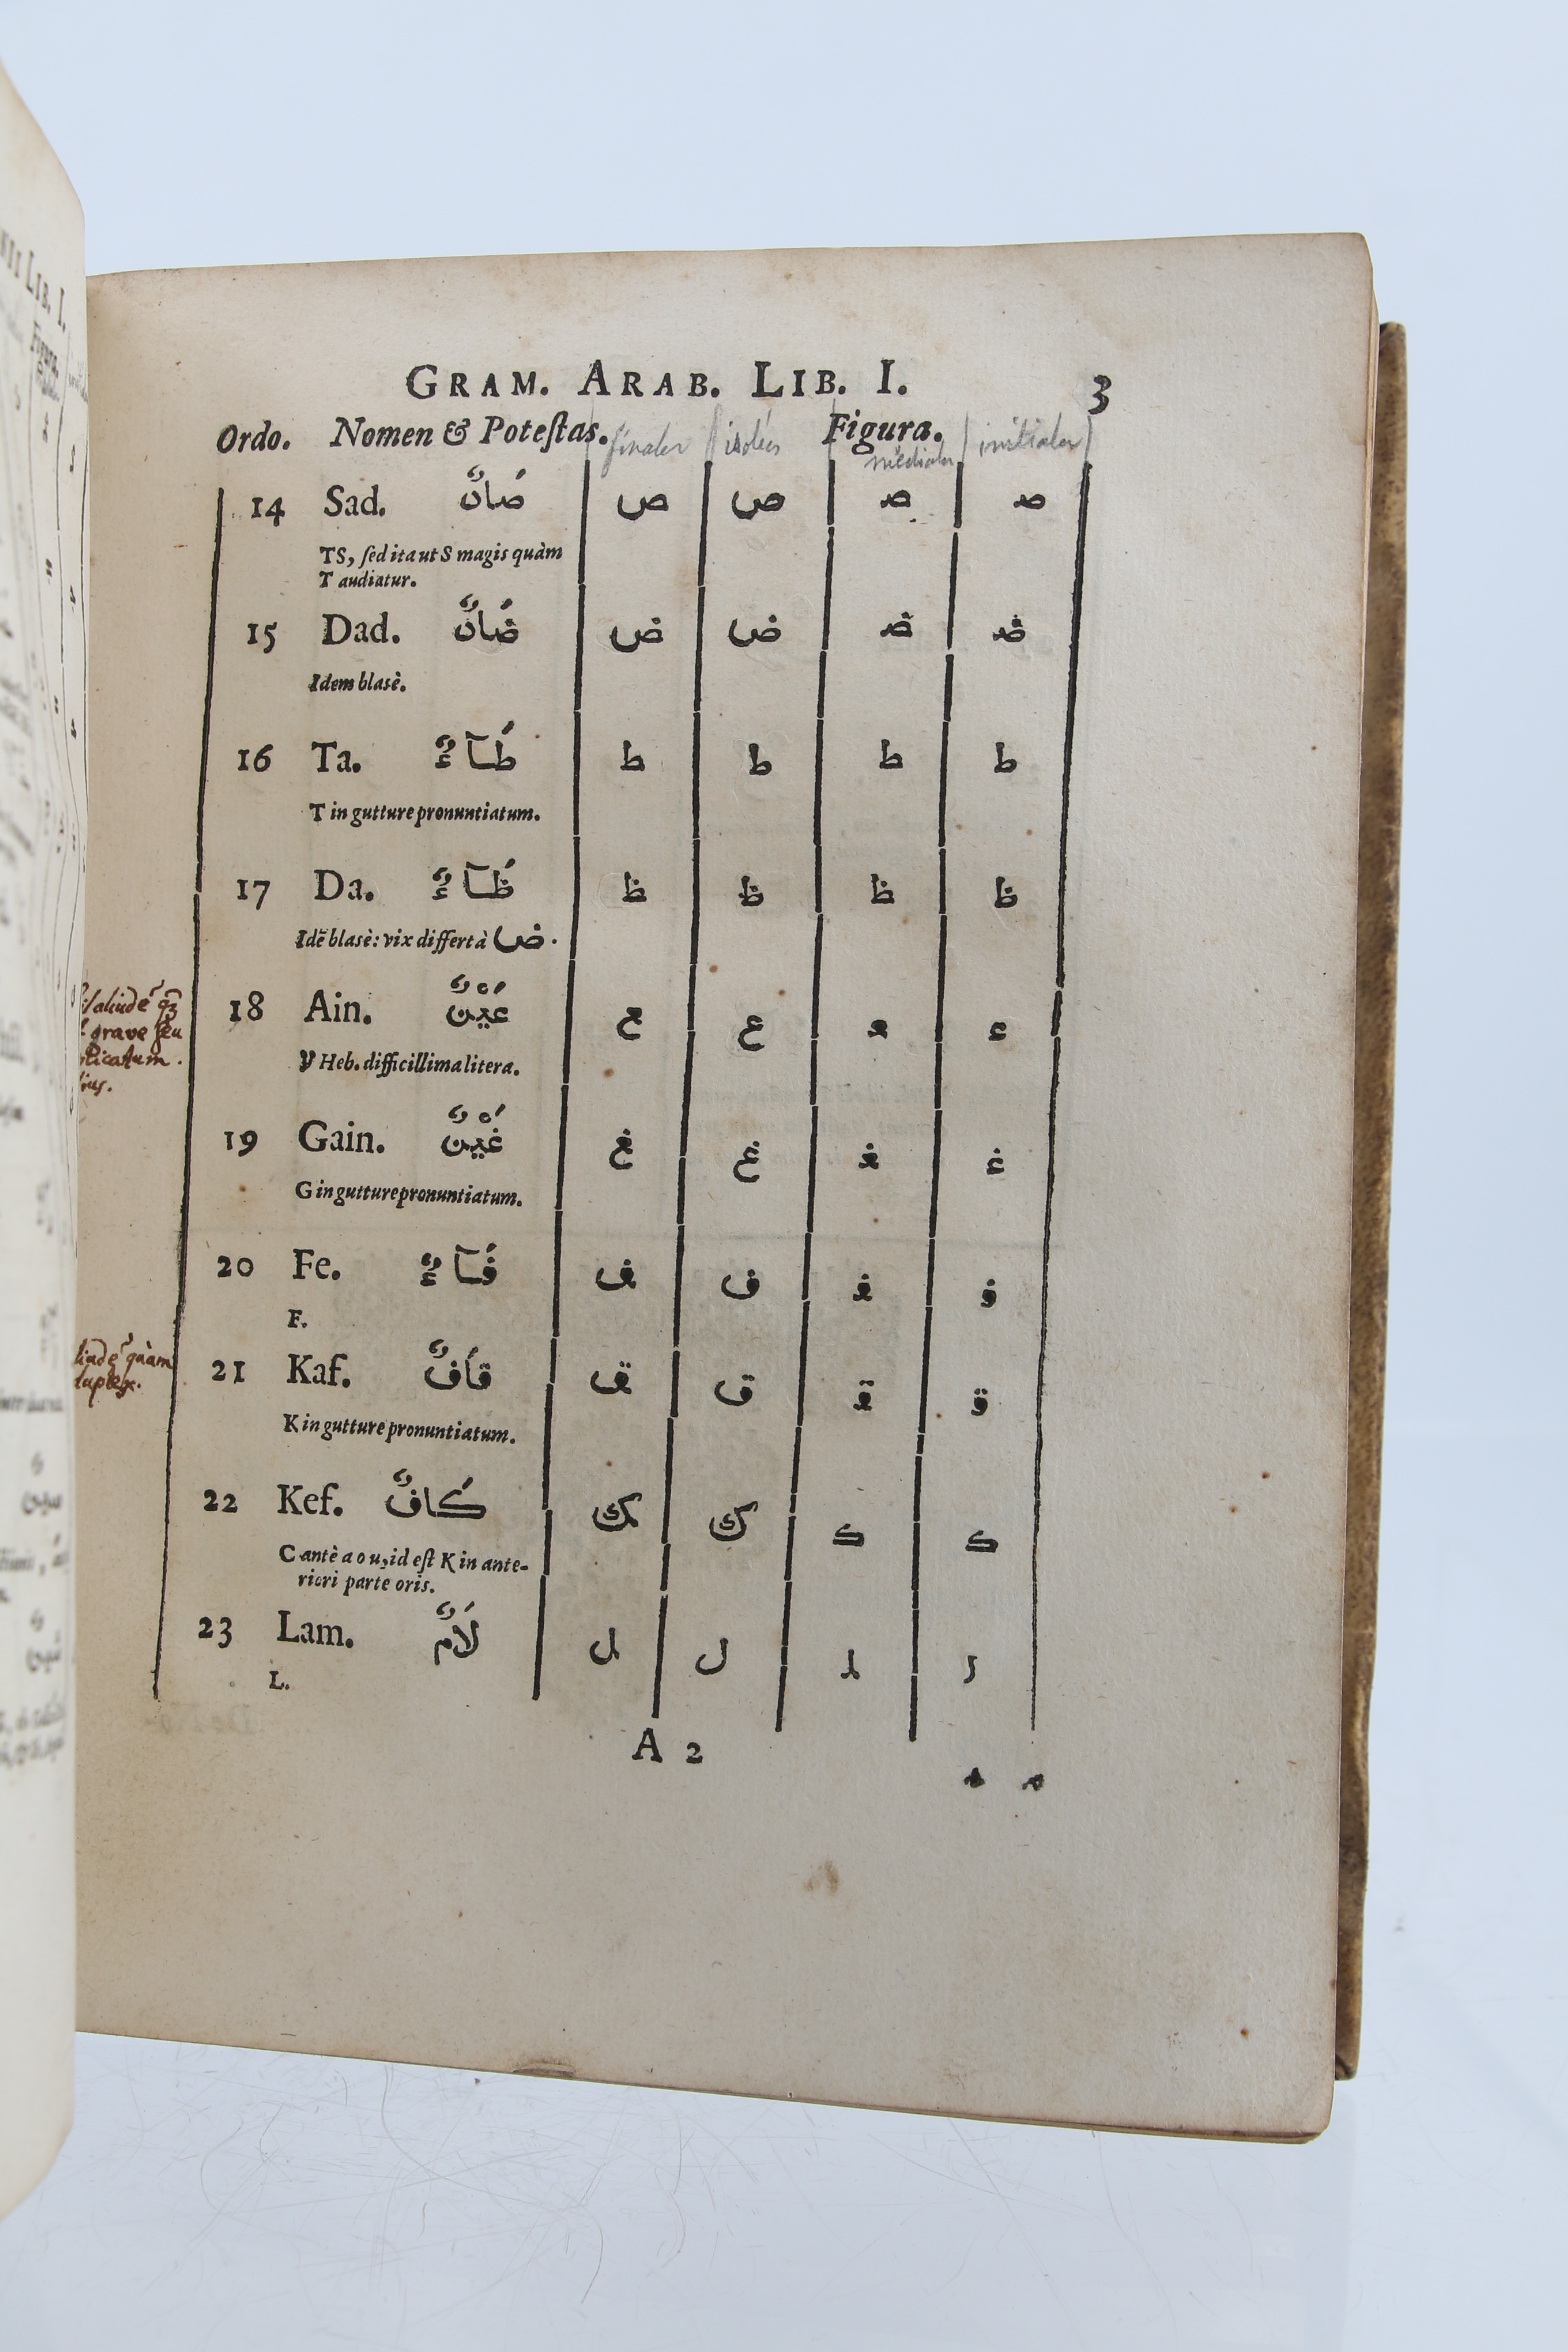 GRAM. ARAB. LIB. I. 3
Ordo. Nomen & Poteſtas. Figura.
finales isolées médiales initiales
14 Sad. صَادٌ ص ص ص ص
TS, ſed ita ut S magis quàm
T audiatur.
15 Dad. ضَادٌ ض ض ض ض
Idem blasè.
16 Ta. طَآءٌ ط ط ط ط
T in gutture pronuntiatum.
17 Da. ظَآءٌ ظ ظ ظ ظ
Idē blasè: vix differt à ض.
18 Ain. عَيْنٌ ع ع ع ع
ע Heb. difficillima litera.
19 Gain. غَيْنٌ غ غ غ غ
G in gutture pronuntiatum.
20 Fe. فَآءٌ ف ف ف ف
F.
21 Kaf. قَافٌ ق ق ق ق
K in gutture pronuntiatum.
22 Kef. كَافٌ ك ك ك ك
C antè a o u, id eſt K in ante-
riori parte oris.
23 Lam. لَامٌ ل ل ل ل
L.
A 2
grave
quàm
LIB. I.
Figura.